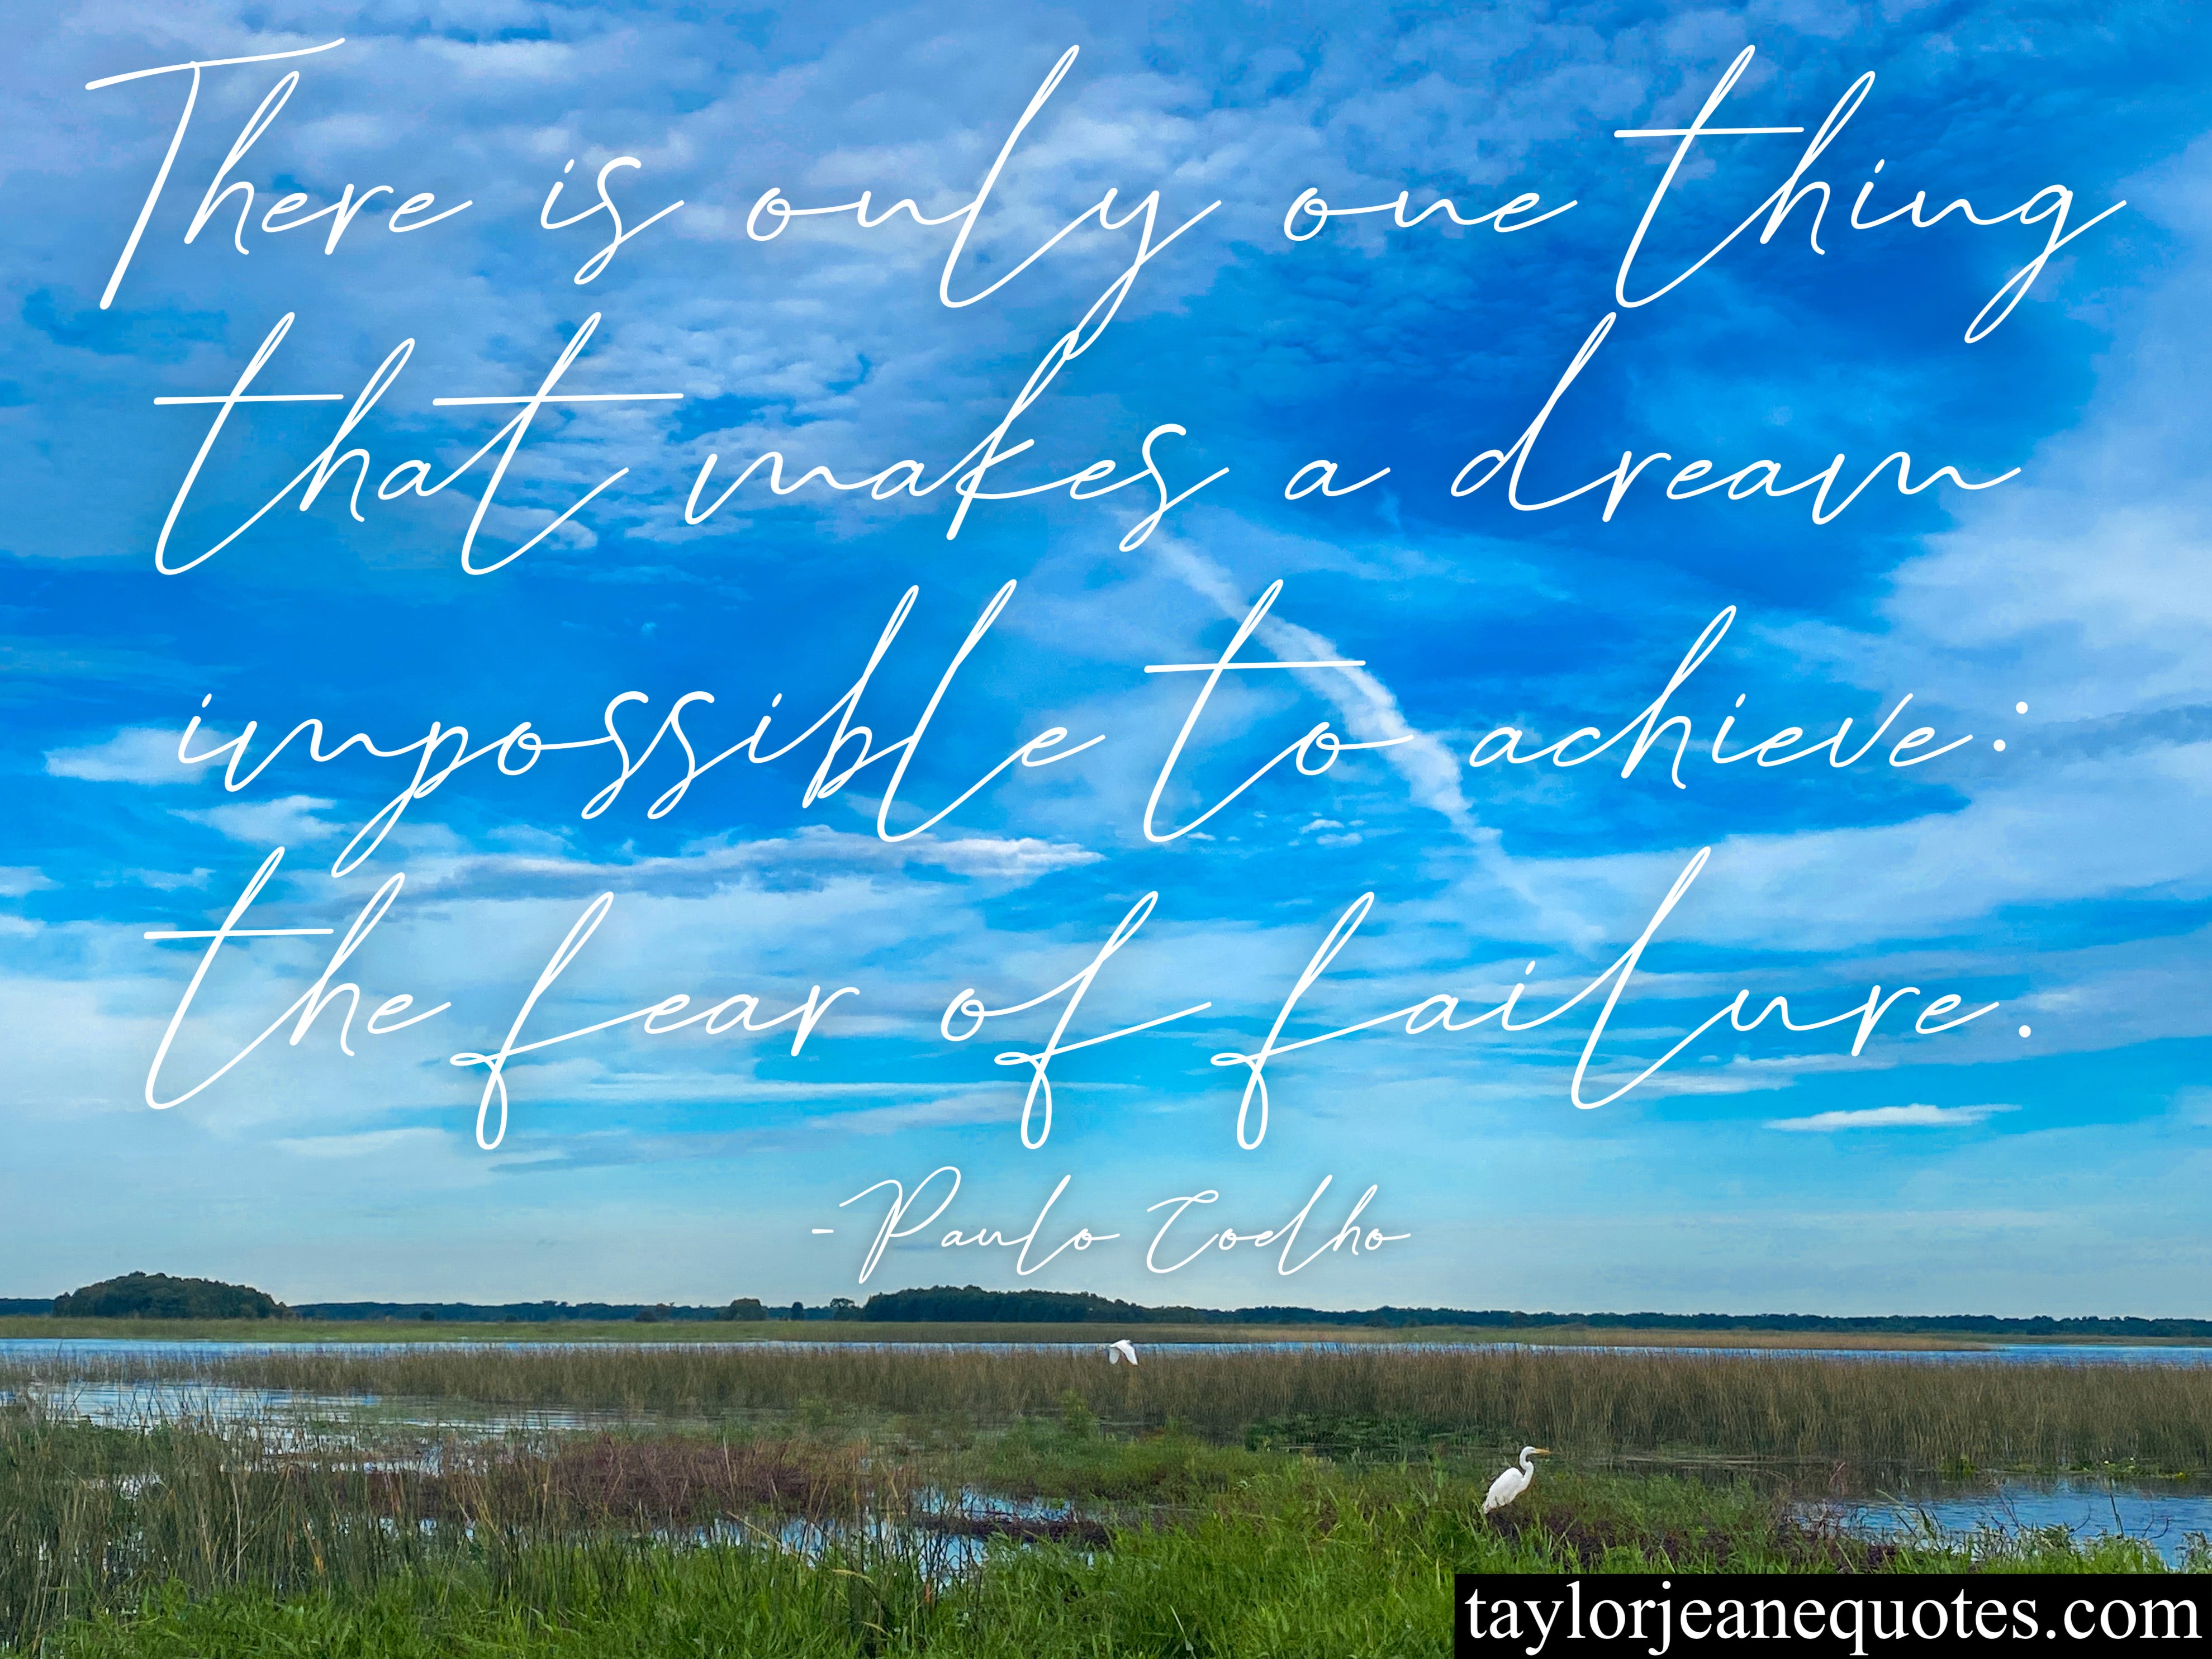 There is only one thing
that makes a dream
impossible to achieve:
the fear of failure.
-Paulo Coelho
taylorjeanequotes.com